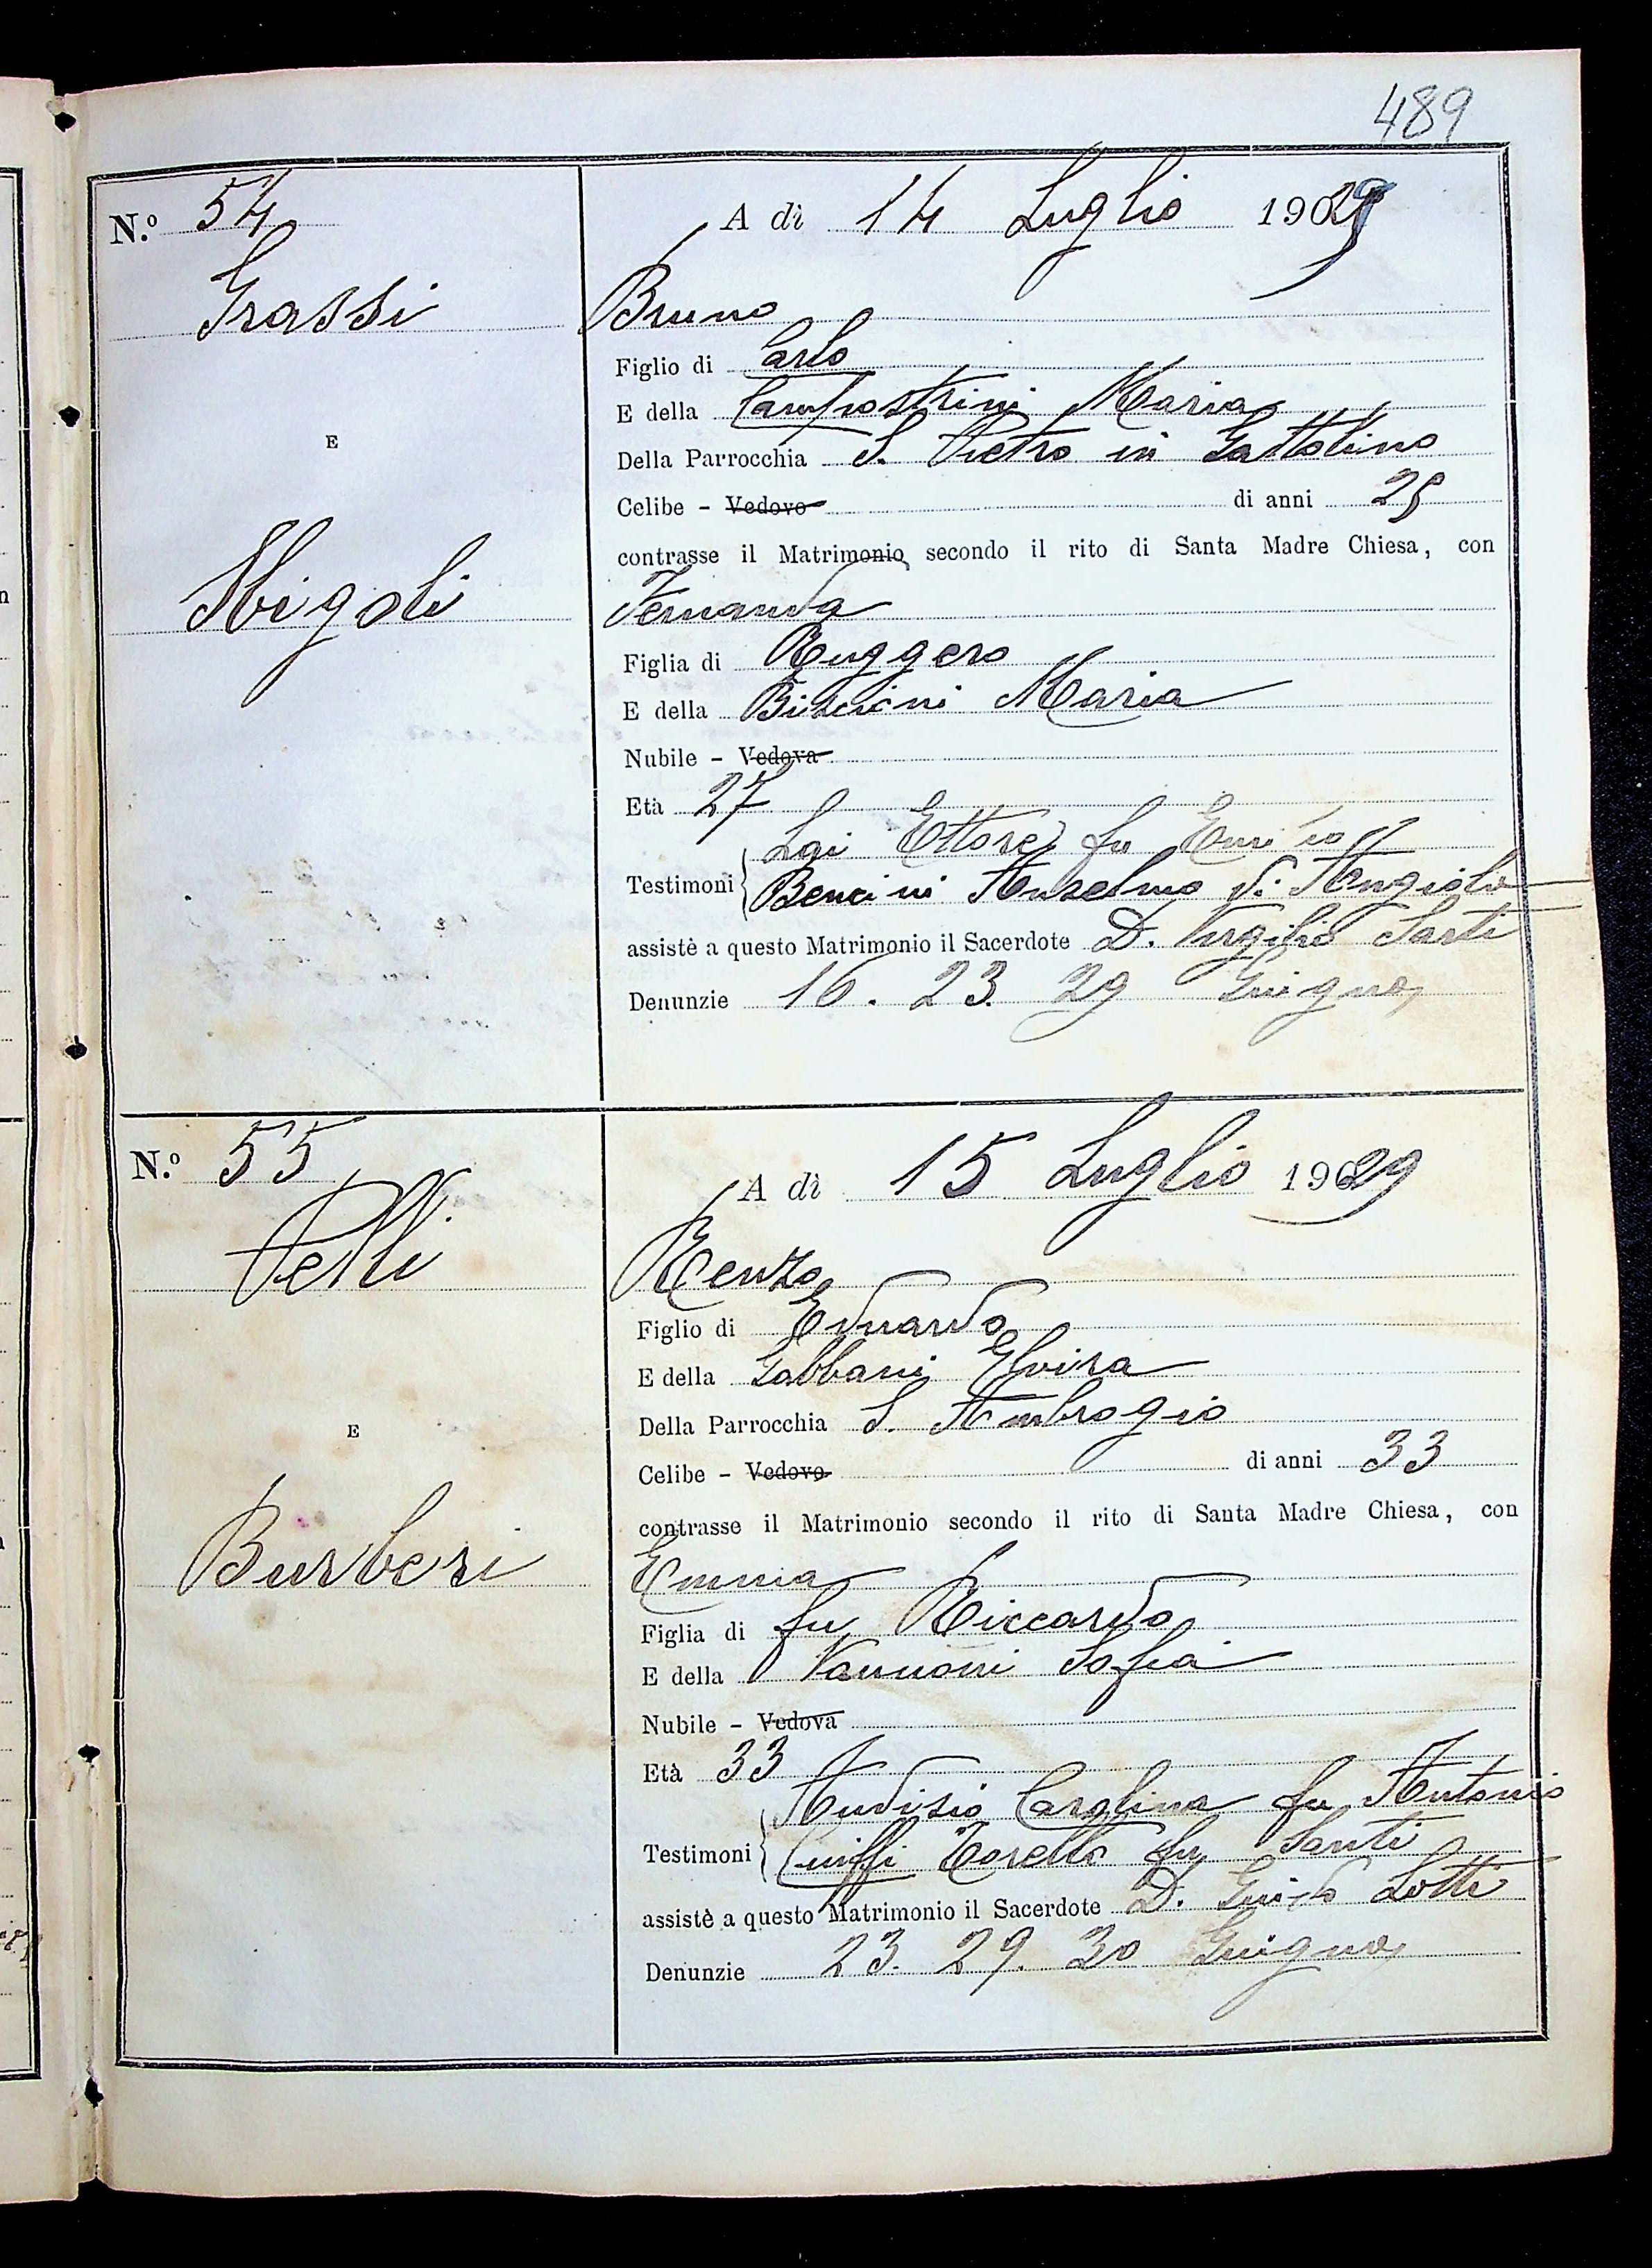 489
N.º 54
A dì 14 Luglio 1929
Grassi
Bruno
Figlio di Carlo
E della Campostrini Maria
E
Della Parrocchia S. Pietro in Gattolino
Celibe - Vedovo di anni 25
contrasse il Matrimonio secondo il rito di Santa Madre Chiesa, con
Migoli
Fernanda
Figlia di Ruggero
E della Maria
Nubile - Vedova
Età 27
Ettore fu Enrico
Testimoni Bencini Anselmo di Angiolo
assistè a questo Matrimonio il Sacerdote D. Virgilio Sarti
Denunzie 16. 23. 29 Giugno
N.º 55
A dì 15 Luglio 1929
Pelli
Renzo
Figlio di Eduardo
E della Gabbani Elvira
Della Parrocchia S. Ambrogio
E
Celibe - Vedovo di anni 33
contrasse il Matrimonio secondo il rito di Santa Madre Chiesa, con
Burberi
Emma
Figlia di fu Riccardo
E della Vannoni Sofia
Nubile - Vedova
Età 33
Audisio Carolina fu Antonio
Testimoni Ciuffi Torello fu Santi
assistè a questo Matrimonio il Sacerdote D. Guido Lotti
Denunzie 23. 29. 30 Giugno